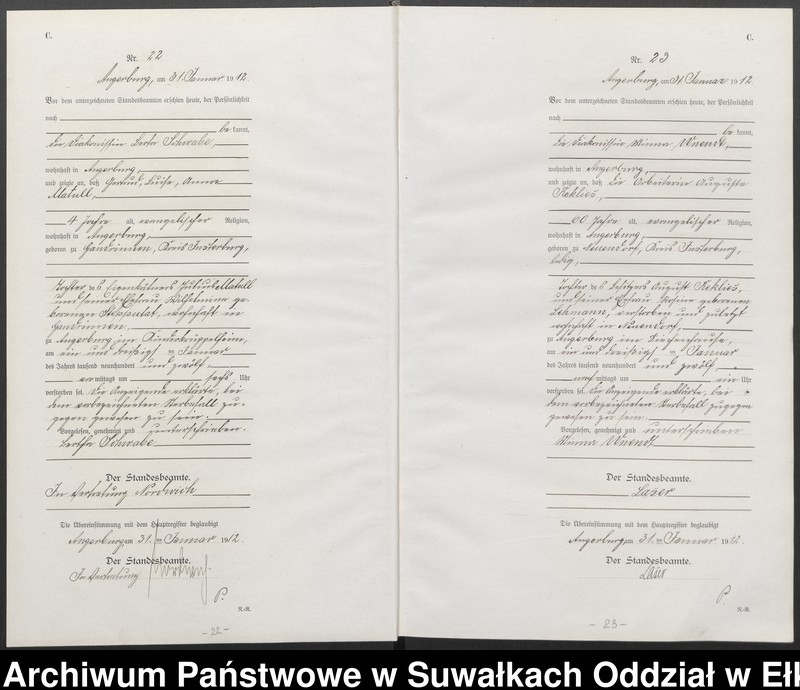 C.
Nr. 22
Angerburg, am 31. Januar 1912.
Vor dem unterzeichneten Standesbeamten erschien heute, der Persönlichkeit
nach
bekannt,
die Diakonissin Berta Schwabe,
wohnhaft in Angerburg,
und zeigte an, daß Gertrud, Luise, Anna
Matull,
4 Jahre alt, evangelischer Religion,
wohnhaft in Angerburg
geboren zu Kreis Insterburg,
Tochter des Eigenkätners Julius Matull
und seiner Ehefrau Wilhelmine ge-
borenen wohnhaft in
zu Angerburg im Kinderkrüppelheim,
am ein und dreißigsten Januar
des Jahres tausend neunhundert und zwölf
vormittags um sechs Uhr
verstorben sei. Die Anzeigende erklärte, bei
dem vorbezeichneten Sterbefall zu-
gegen gewesen zu sein.
Vorgelesen, genehmigt und unterschrieben.
Bertha Schwabe
Der Standesbeamte.
In Vertretung
Die Übereinstimmung mit dem Hauptregister beglaubigt
Angerburg, am 31. ten Januar 1912.
Der Standesbeamte.
In Vertretung
P.
R.-R.
- 22 -
C.
Nr. 23
Angerburg, am 31. Januar 1912.
Vor dem unterzeichneten Standesbeamten erschien heute, der Persönlichkeit
nach
bekannt,
die Diakonissin Minna
wohnhaft in Angerburg,
und zeigte an, daß die Arbeiterin Auguste
Reklies,
60 Jahre alt, evangelischer Religion,
wohnhaft in Angerburg,
geboren zu Neuendorf, Kreis Insterburg,
ledig,
Tochter des Besitzers August Reklies,
und seiner Ehefrau Rosine geborenen
Lehmann, verstorben und zuletzt
wohnhaft in Neuendorf,
zu Angerburg im Siechenhause,
am ein und dreißigsten Januar
des Jahres tausend neunhundert und zwölf
nachmittags um ein Uhr
verstorben sei. Die Anzeigende erklärte, bei
dem vorbezeichneten Sterbefall zugegen
gewesen zu sein.
Vorgelesen, genehmigt und unterschrieben
Minna
Der Standesbeamte.
Laser
Die Übereinstimmung mit dem Hauptregister beglaubigt
Angerburg, am 31. ten Januar 1912.
Der Standesbeamte.
Laser
P.
R.-R.
- 23 -
Archiwum Państwowe w Suwałkach Oddział w Ełk